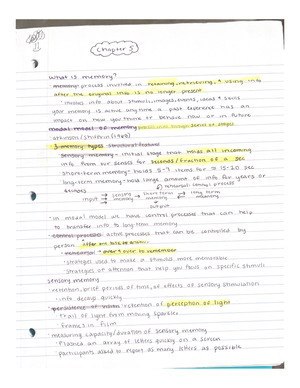 Chapter 5
What is memory?
· memory- process involved in retaining, retrieving, + using info
after the original info is no longer present
· involves info about stimuli, images, events, ideas + skills
your memory is active any time a past experience has an
impact on how you think or behave now or in future
modal model of memory series of stages
atkinson/shiffrin (1968)
3 memory types structural features
sensory memory- initial stage that holds all incoming
info from our senses for seconds/fraction of a sec
short-term memory- holds 5-7 items for ~ 15-20 sec
long-term memory- hold large amount of info for years or
rehearsal: control process
input → sensory memory → short term memory long term memory
output
· in modal model we have control processes that can help
to transfer info to long-term memory
· control processes- active processes that can be controlled by
person
· rehearsal- over + over to remember
· strategies used to make a stimulus more memorable
· strategies of attention that help you focus on specific stimuli
sensory memory
· retention, brief period of time, of effects of sensory stimulation
· info decays quickly
· persistence of vision: retention of perception of light
· trail of light from moving sparkler
· frames in film
· measuring capacity/duration of sensory memory
· flashed an array of letters quickly on a screen
participants asked to report as many letters as possible